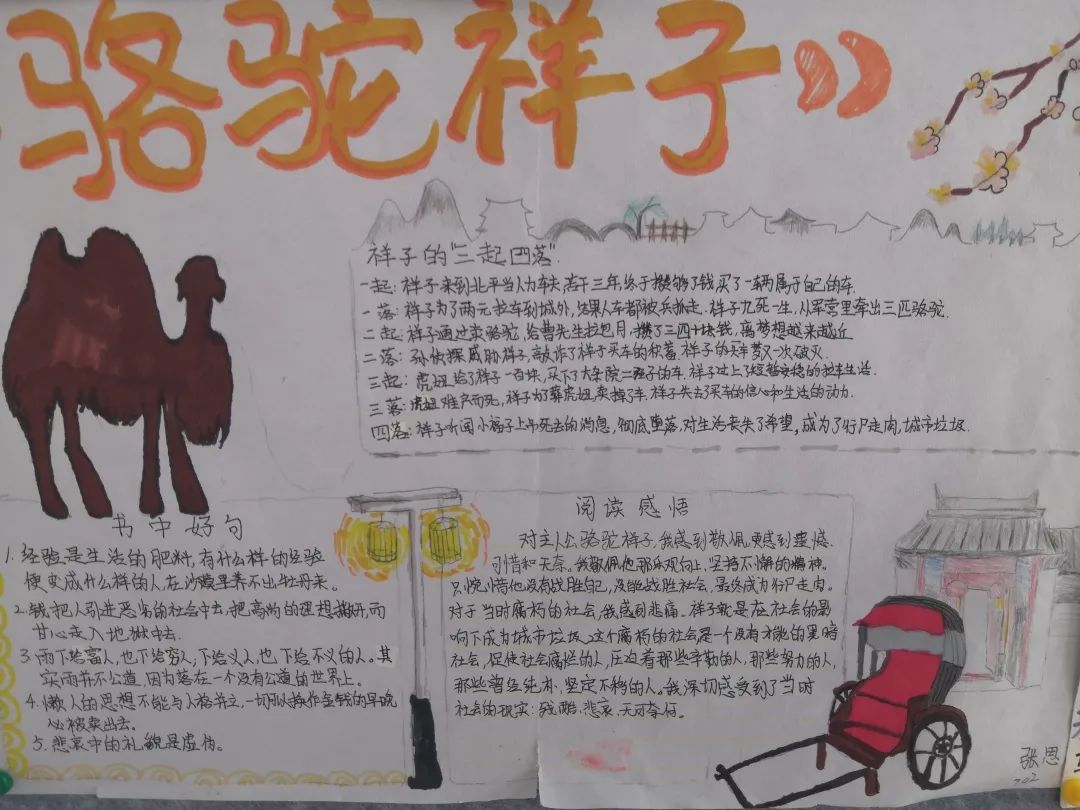 骆驼祥子》
祥子的"三起四落"
一起：祥子来到北平当人力车夫，若干三年，终于攒够了钱，买了一辆属于自己的车.
一落：祥子为了两元拉车到城外，结果人车都被兵抓走.祥子九死一生，从军营里牵出三匹骆驼.
二起：祥子通过卖骆驼，给曹先生拉包月，攒了三四十块钱，离梦想越来越近
二落：孙侦探威胁祥子，敲诈了祥子买车的积蓄.祥子的买车梦又一次破灭.
三起：虎妞给了祥子一百块，买下了大杂院二强子的车.祥子过上了短暂安稳的拉车生活.
三落：虎妞难产而死，祥子为了葬虎妞，卖掉了车.祥子失去了买车的信心和生活的动力.
四落：祥子听闻小福子上吊死去的消息，彻底堕落.对生活丧失了希望，成为了行尸走肉，城市垃圾.
书中好句
1.经验是生活的肥料，有什么样的经验
便变成什么样的人，在沙漠里养不出牡丹来.
2.钱把人引进恶劣的社会中去，把高尚的理想撇开，而
甘心走入地狱中去.
3.雨下给富人，也下给穷人，下给义人，也下给不义的人。其
实雨并不公道，因为落在一个没有公道的世界上。
4.懒人的思想不能与人格并立，一切可以换作金钱的早晚
必被卖出去。
5.悲哀中的礼貌是虚伪。
阅读感悟
对主人公骆驼祥子，我感到敬佩，更感到灵感.
可惜和无奈。我敬佩他那乐观向上，坚持不懈的精神。
只惋惜他没有战胜自己，没能战胜社会，最终成为行尸走肉。
对于当时腐朽的社会，我感到悲痛。祥子就是在社会的影
响下成为城市垃圾，这个腐朽的社会是一个没有才能的黑暗
社会，促使社会腐烂的人，压迫着那些辛勤的人，那些努力的人，
那些曾经纯朴、坚定不移的人。我深切感受到了当时
社会的现实：残酷，悲哀，无可奈何。
张恩
702